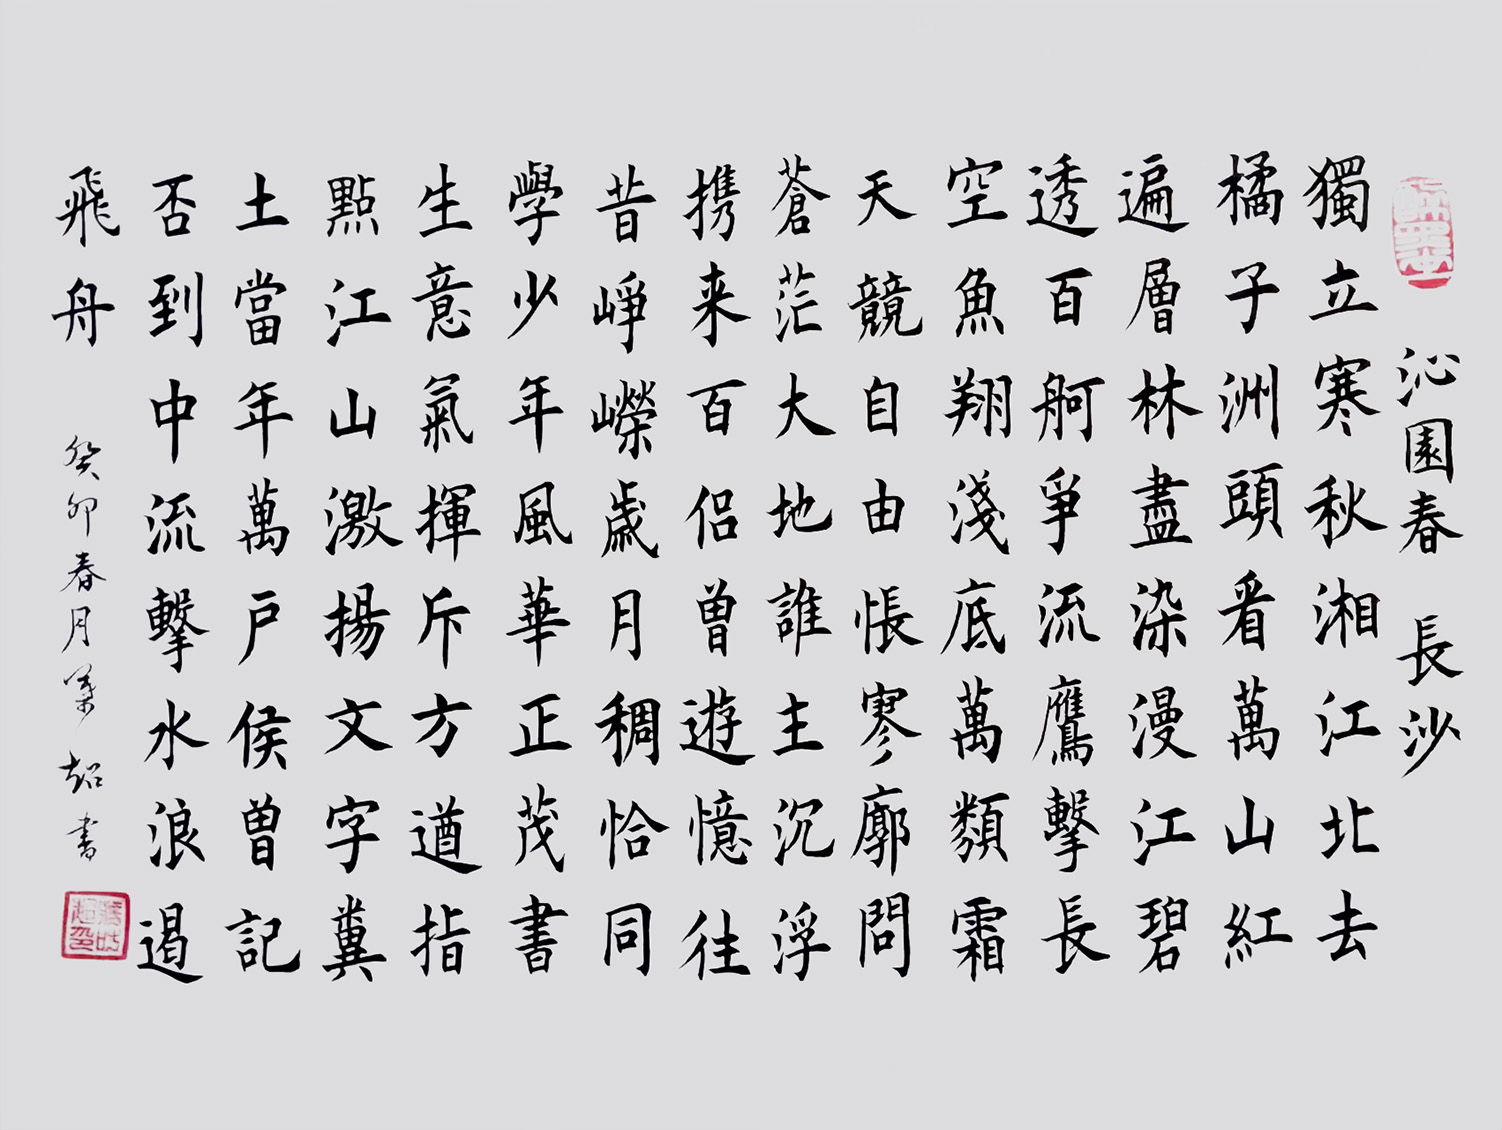 沁園春 長沙
獨立寒秋湘江北去
橘子洲頭看萬山紅
遍層林盡染漫江碧
透百舸爭流鷹擊長
空魚翔淺底萬類霜
天競自由悵寥廓問
蒼茫大地誰主沉浮
携来百侣曾遊憶往
昔崢嶸歲月稠恰同
學少年風華正茂書
生意氣揮斥方遒指
點江山激揚文字糞
土當年萬戶侯曾記
否到中流擊水浪遏
飛舟
癸卯春月 超書